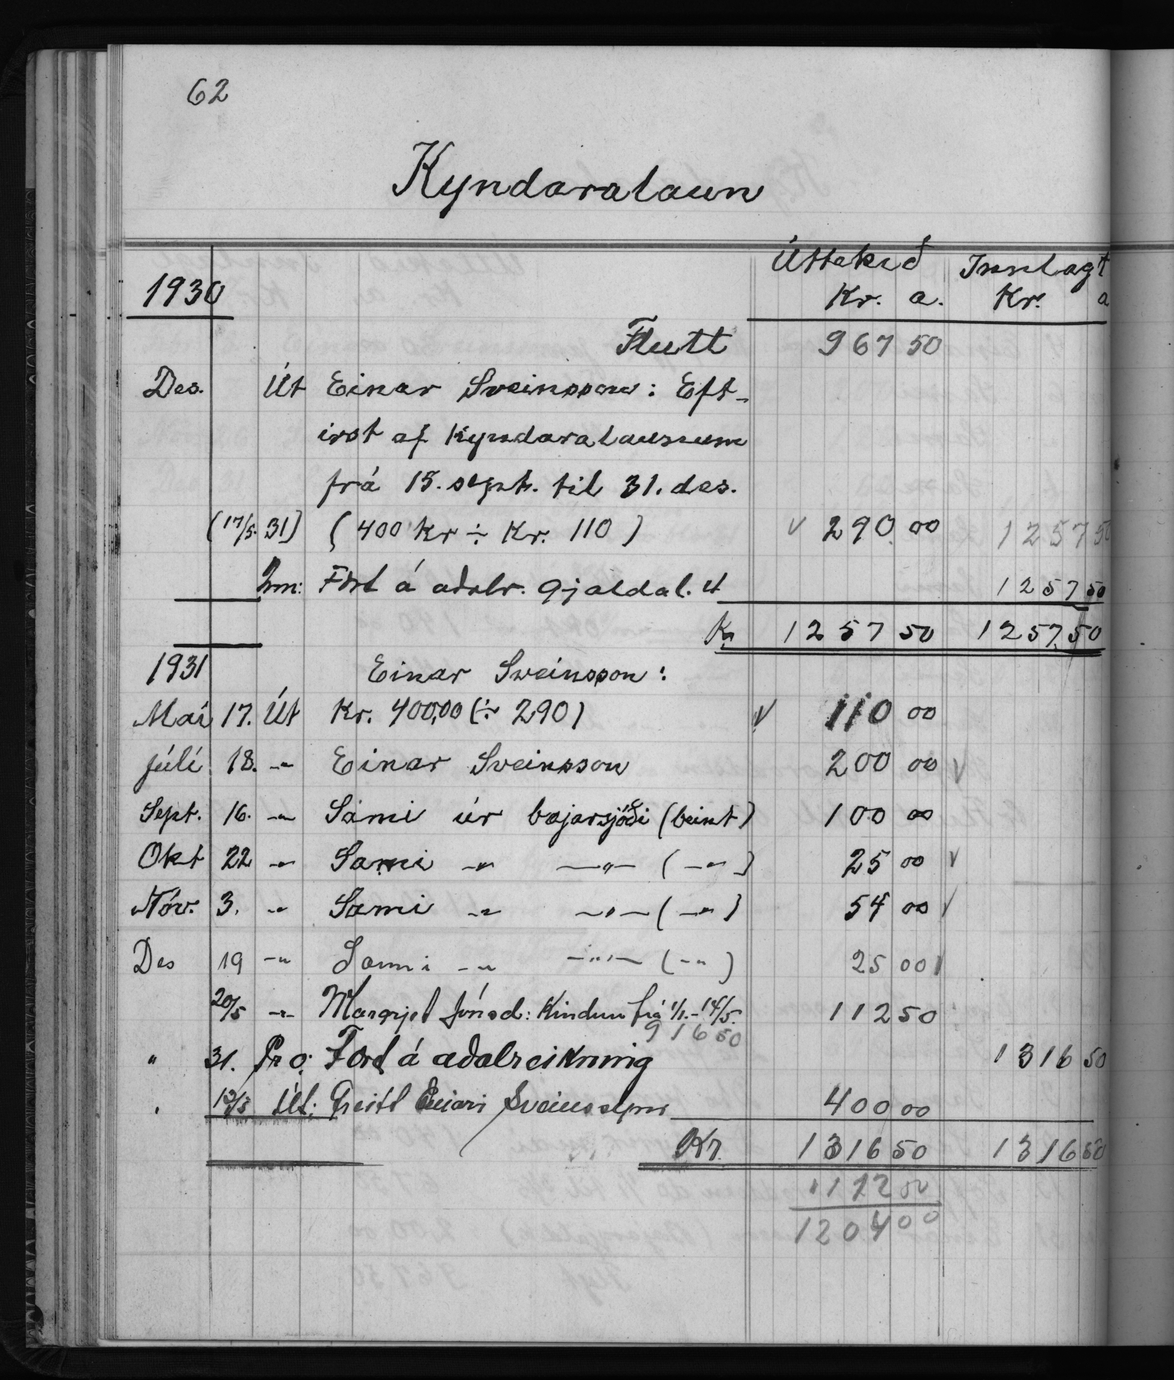 62
Kyndaralaun
Úttekið Innlagt
1930 Kr. a. Kr. a
Flutt 967 50
Des. Út Einar Sveinsson: Eft-
irst af Kyndaralaununum
frá 15. sept. til 31. des.
(17/5. 31) (400 Kr ÷ Kr. 110) √ 290.00 1257 50
Inn: Fært á aðalr. gjaldal. 1257 50
Kr 1257 50 1257.50
1931 Einar Sveinsson:
Maí 17. Út Kr. 400,00 (÷ 290) √ 110 00
Júlí 18. -"- Einar Sveinsson 200 00 √
Sept. 16. -"- Sami úr bæjarsjóði (beint) 100 00
Okt 22 -"- Sami -"- -"- (-"-) 25 00 √
Nóv. 3. -"- Sami -"- -"- (-"-) 54 00 √
Des 19 -"- Sami -"- -"- (-"-) 25 00 √
20/5 -"- Margrjet Jónsd: Kindun frá 1/1.-14/5. 112 50
916 50
" 31. Pr. o: Fært á aðalreikning 1316 50
" 12/3 Út: Greitt Einari Sveinssyni 400 00
Kr. 1316 50 1316 50
112 50
1204 00